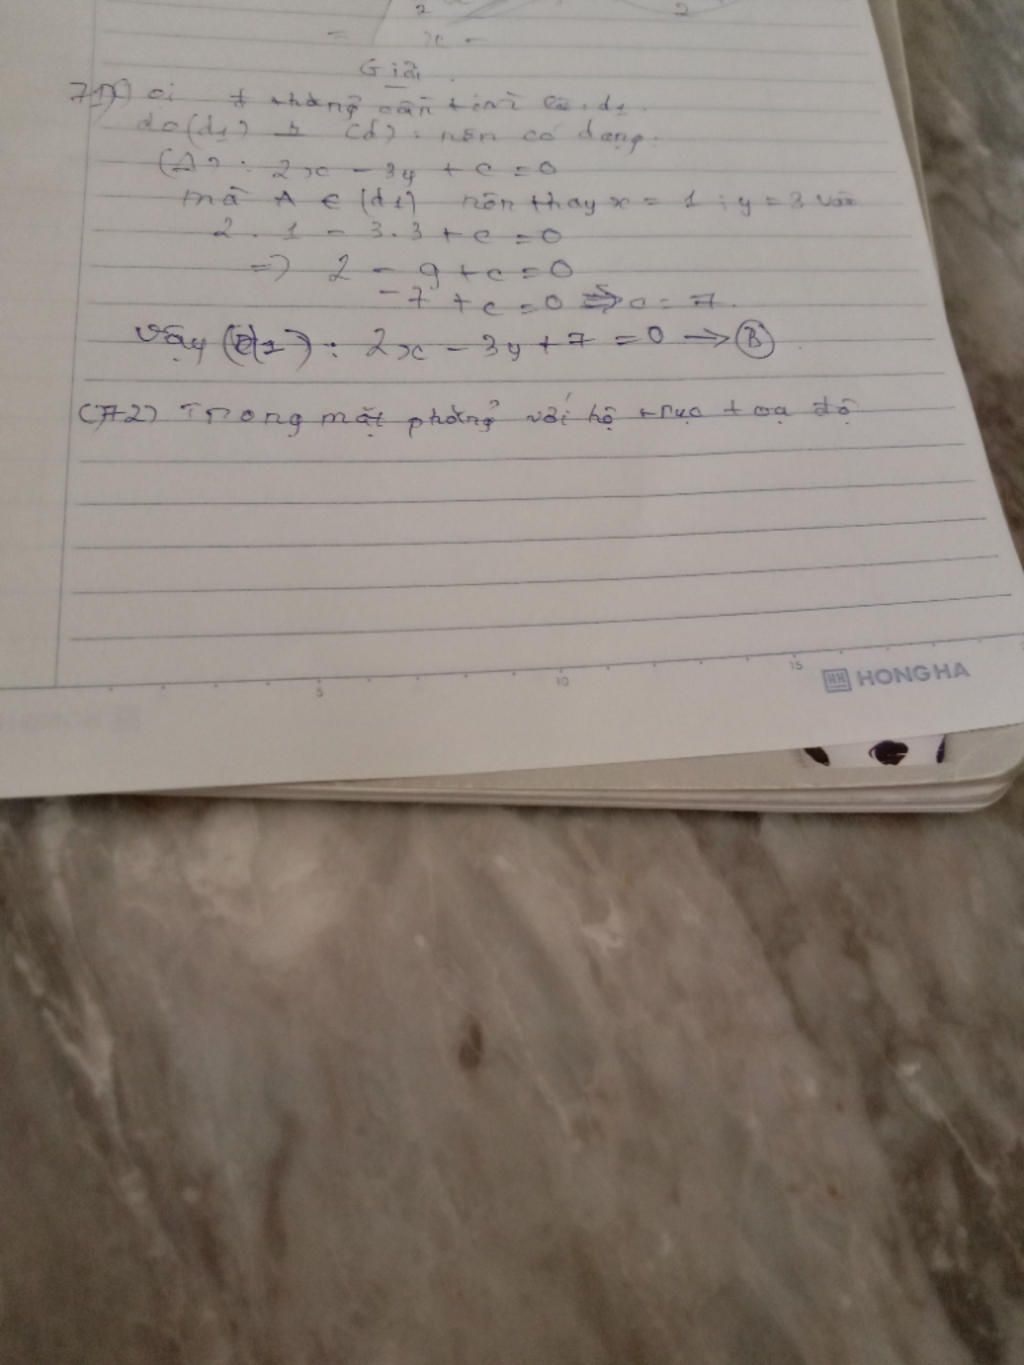 2 2
= x -
Giải.
71) Gọi đ thẳng cần tìm là d1.
do (d1) (d). nên có dạng.
(Δ): 2x - 3y + c = 0
mà A ∈ (d1) nên thay x = 1; y = 3 vào
2. 1 - 3. 3 + c = 0
=> 2 - 9 + c = 0
-7 + c = 0 => c = 7.
Vậy (d1): 2x - 3y + 7 = 0 → B
(72) Trong mặt phẳng với hệ trục toạ độ
5 10 15 HH HONG HA